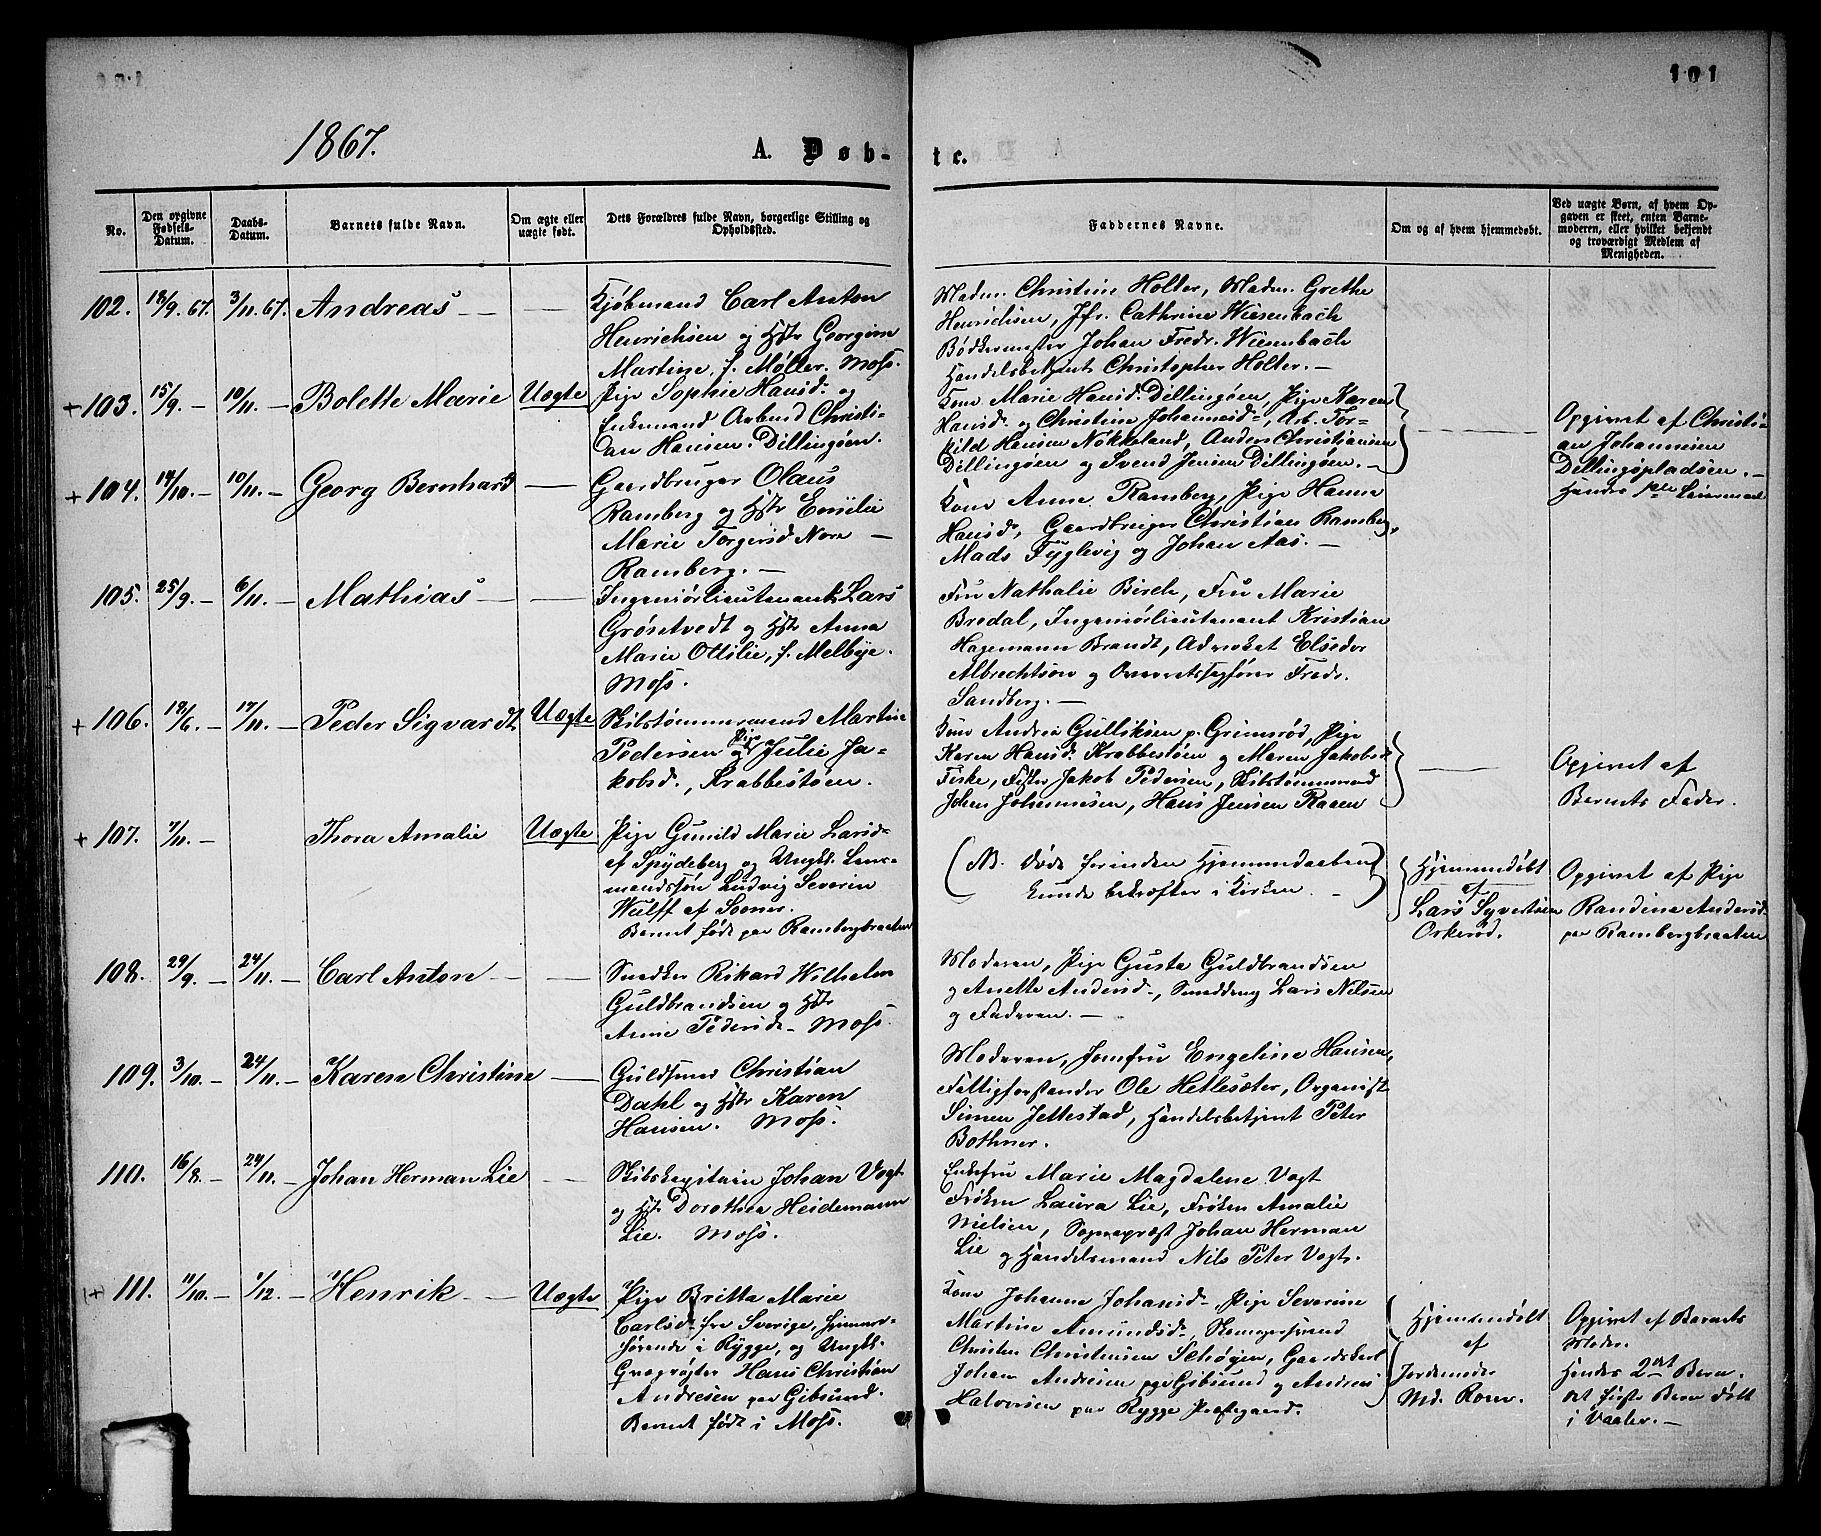 101
1867.
A. Døb-
te.
No.
Den opgivne Fødsels-Datum.
Daabs-Datum.
Barnets fulde Navn.
Om ægte eller uægte født.
Dets Forældres fulde Navn, borgerlige Stilling og Opholdssted.
Faddernes Navne.
Om og af hvem hjemmedøbt.
Ved uægte Børn, af hvem Opgaven er skeet, enten Barnemoderen, eller hvilket bekjendt og troværdigt Medlem af Menigheden.
102. 18/9 67. 3/11 67. Andreas — —
Kjøbmand Carl Anton
Henrichsen og Hstr Georgine
Martine, f. Møller. Moss.
Madm. Christine Holter, Madm. Grethe
Henrichsen, Jfr. Cathrine Wiesenbach
Bødkermester Johan Fredr. Wiesenbach
Handelsbetjent Christopher Holter. —
+ 103. 15/9 — 10/11 — Bolette Marie Uægte
Pige Sophie Hansd. og
Enkemand Arbmd Christi-
an Hansen. Dillingøen.
Kone Marie Hansd. Dillingøen, Pige Karen
Hansd. og Christine Johannesd., Arb. Tor-
kild Hansen Nøkkeland, Anders Christiansen
Dillingøen og Svend Jensen Dillingøen. —
Opgivet af Christi-
an Johannesen
Dillingøpladsen. —
Hendes 1ste Leiermaal
+ 104. 14/10. — 10/11. — Georg Bernhard —
Gaardbruger Olaus
Ramberg og Hstr Emilie
Marie Torgersd Nore —
Ramberg. —
Kone Anne Ramberg, Pige Hanna
Hansd., Gaardbruger Christian Ramberg,
Mads Fuglevig og Johan Aas. —
105. 25/9. — 6/11. — Mathias — —
Ingeniørlieutenant Lars
Grøntvedt og Hstr Anna
Marie Ottilie, f. Melbye.
Moss.
Fru Nathalie Birch, Fru Marie
Bredal, Ingeniørlieutenant Kristian
Hagemann Brandt, Advokat Elseder
Albrechtson og Overretssagfører Fredr.
Sandberg. —
+ 106. 18/6. — 17/11. — Peder Sigvardt Uægte
Skibstømmermand Martin
Pedersen og Pige Julie Ja-
kobsd., Krabbestøen.
Kone Andrea Gulliksen p. Grimsrød, Pige
Karen Hansd. Krabbestøen og Maren Jakobsd.
Fiske, Jakob Pedersen, Skibstømmermand
Johan Johannesen, Hans Jensen Raaen
Opgivet af
Barnets Fader.
+ 107. 7/11. — Thora Amalie Uægte
Pige Gunild Marie Larsd.
af Spydeberg og Ungk. Lens-
mandssøn Ludvig Severin
Wulff af Sooner.
Barnet født paa Rambergbraaten
(NB. døde forinden Hjemmedaaben
kunde bekræftes i Kirken. —)
Hjemmedøbt
af
Lars Syvertsen
Orkerød.
Opgivet af Pige
Randine Andersd.
paa Rambergbraaten
108. 29/9. — 24/11. — Carl Anton — —
Snedker Rikard Wilhelm
Guldbrandsen og Hstr
Anne Pedersd. Moss.
Moderen, Pige Gusta Guldbrandsen
og Anette Andersd., Smeddreng Lars Nilsen
og Faderen. —
109. 3/10. — 24/11. — Karen Christine —
Guldsmed Christian
Dahl og Hstr Karen
Hansen. Moss.
Moderen, Jomfru Engeline Hansen,
Fattigforstander Ole Hetlesæter, Organist
Simen Jellestad, Handelsbetjent Peter
Bothner.
110. 16/8. — 24/11. — Johan Herman Lie —
Skibskapitain Johan Vogt
og Hstr Dorothea Heidemann
Lie. Moss.
Enkefru Marie Magdalene Vogt
Frøken Laura Lie, Frøken Amalie
Nielsen, Sognepræst Johan Herman
Lie og Handelsmand Nils Peter Vogt.
+ 111. 11/10. — 1/12. — Henrik — Uægte
Pige Britta Marie
Carlsd. fra Sverige, hjemme-
hørende i Rygge, og Ungk.
Hans Christian
Andresen paa Gibsund.
Barnet født i Moss.
Kone Johanne Johansd., Pige Severine
Martine Amundsd.,
Christen Christensen Schøyen, Gaardskarl
Johan Andresen paa Gibsund og Andreas
Halvorsen paa Rygge Præstegaard.
Hjemmedøbt
af
Jordemoder
Md. Rom.
Opgivet af Barnets
Moder.
Hendes 2det Barn.
det første Barn født
i Vaaler. —